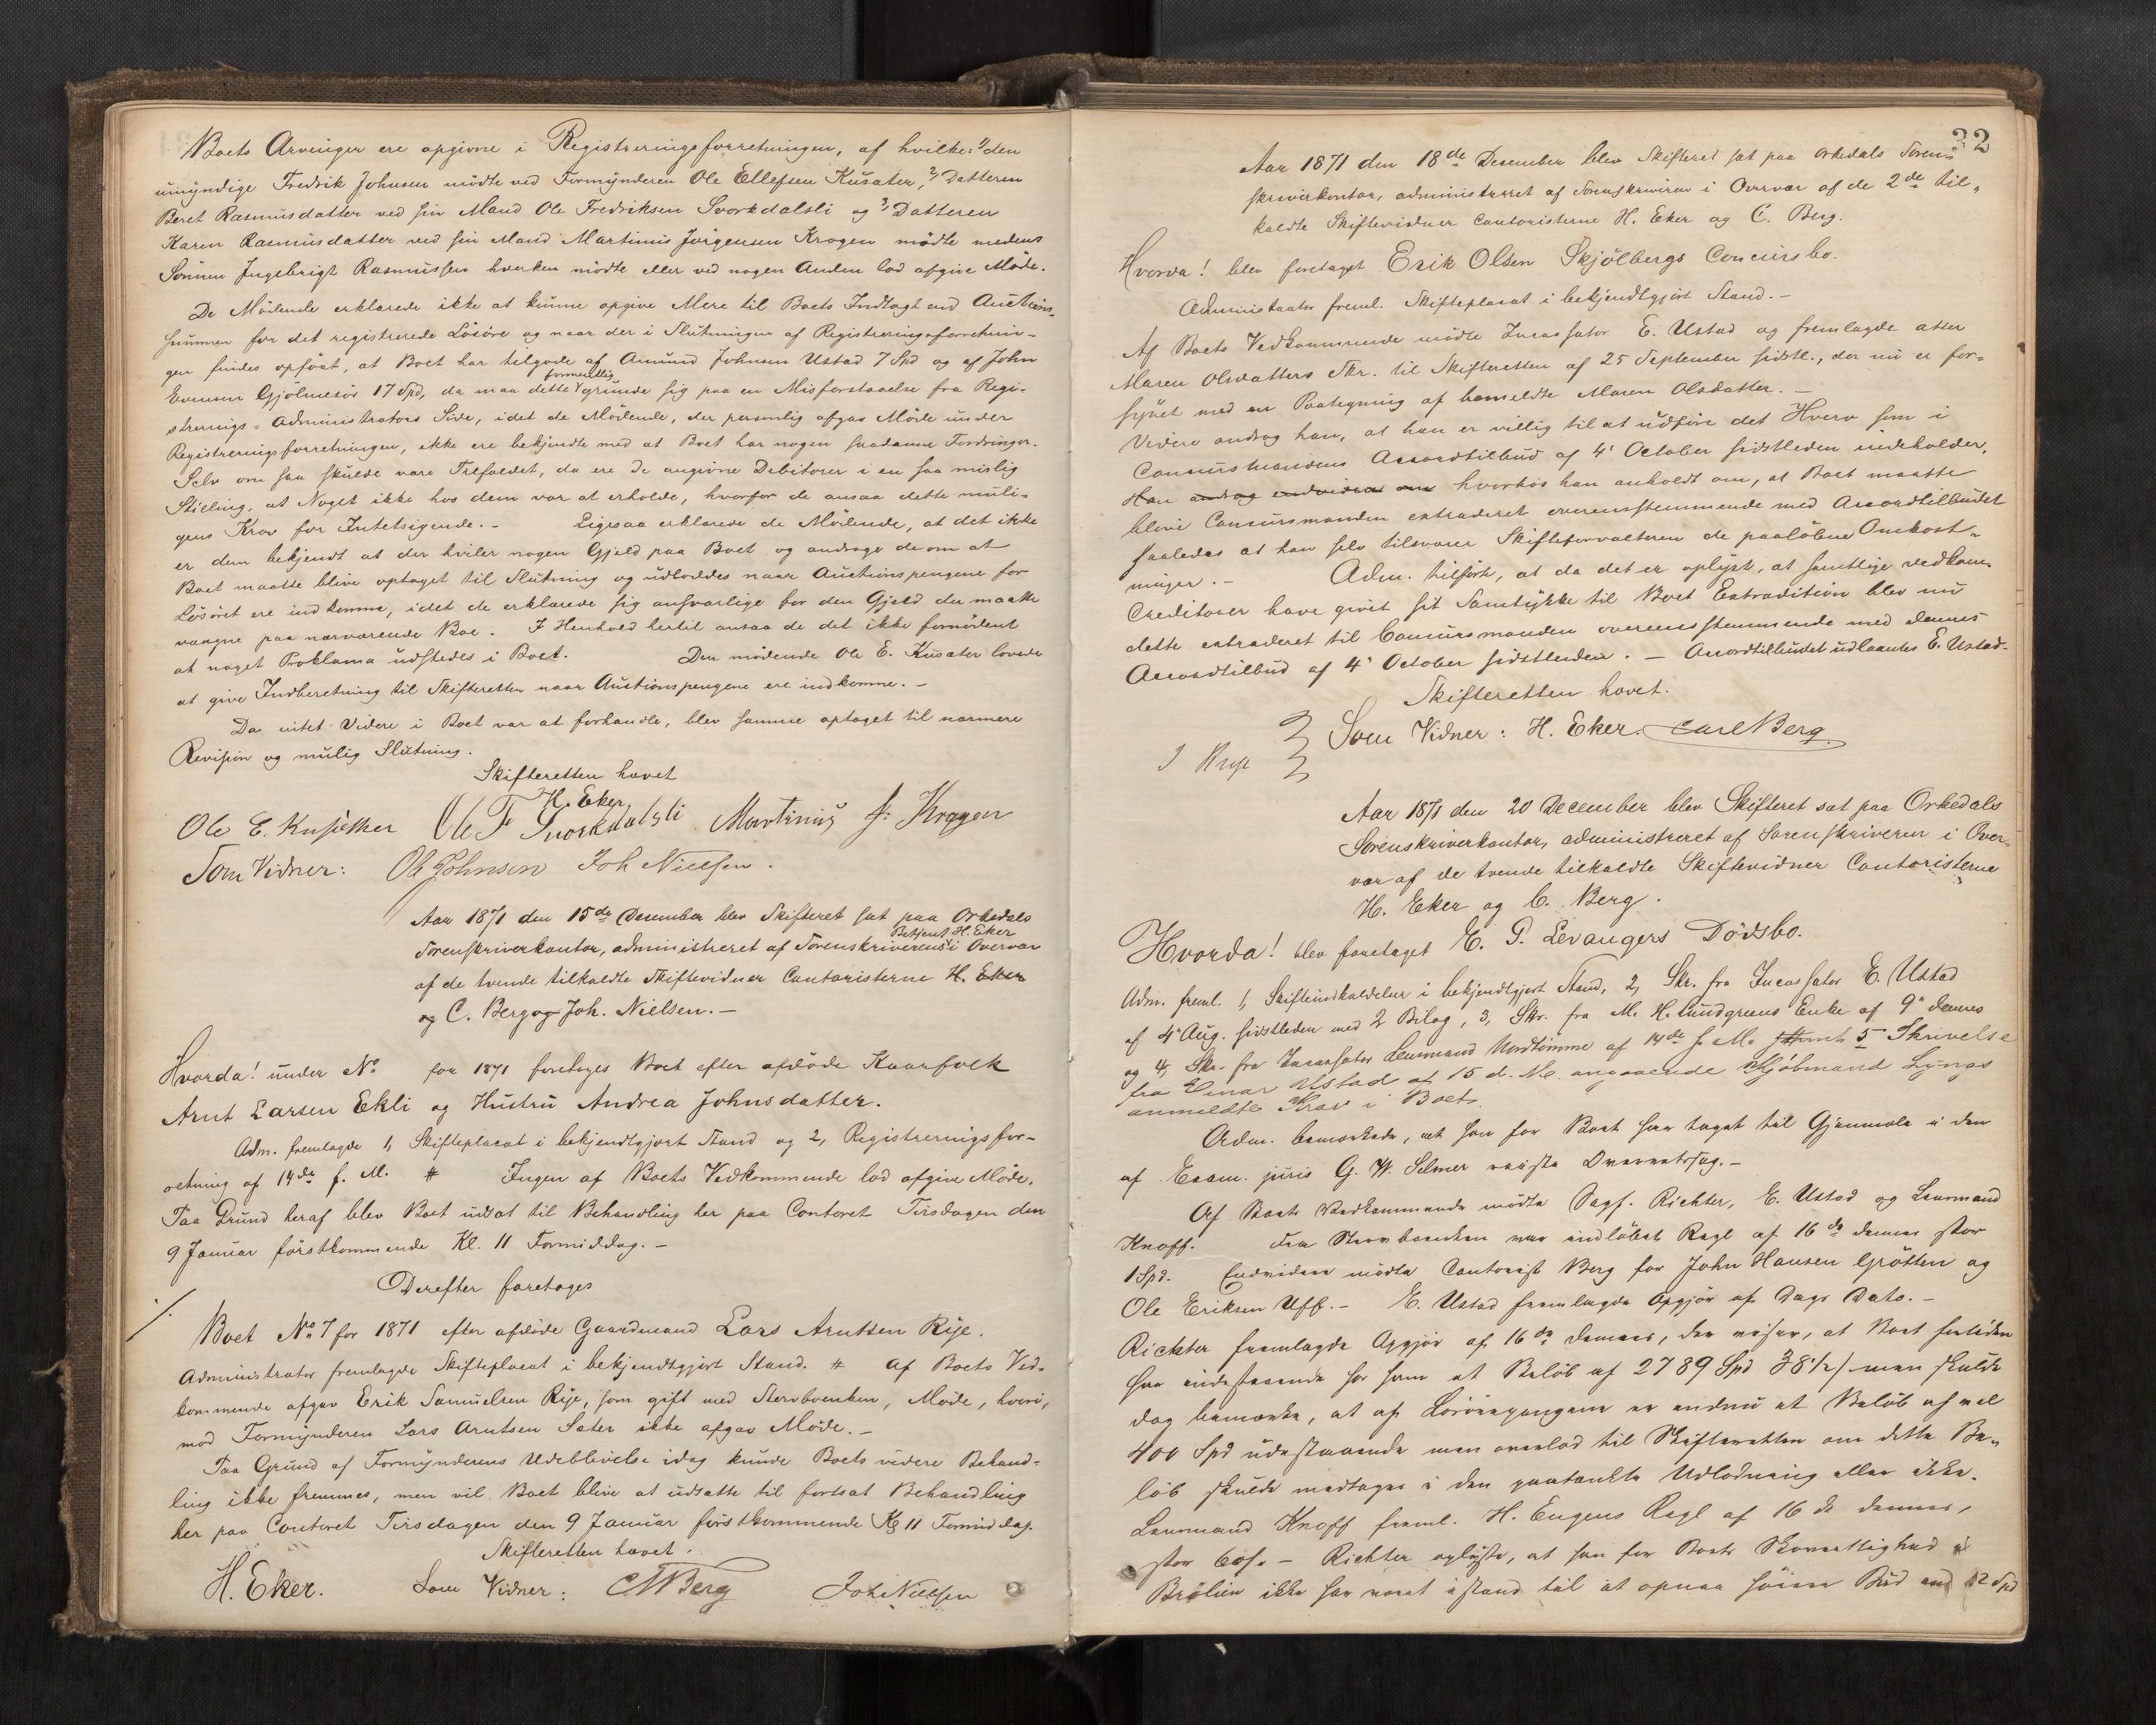 Boets Arvinger ere opgivne i Registreringsforretningen, af hvilke: 1/ den
umyndige Fredrik Johnsen mödte ved Formynderen Ole Ellefsen Kusæter, 2/ Datteren
Beret Rasmusdatter ved sin Mand Ole Fredriksen Svorkdalsli og 3/ Datteren
Karen Rasmusdatter ved sin Mand Martinus Jörgensen Krogen mödte medens
Sönnen Ingebrigt Rasmussen hverken mödte eller ved nogen Anden lod afgive Möde.
De Mödende erklærede ikke at kunne opgive Mere til Boets Indtægt end Auctions-
summen for det registrerede Lösöre og naar der i Slutningen af Registreringsforretnin-
gen findes opfört, at Boet har tilgode af Amund Johnsen Ustad 7 Spd og af John
Evensen Gjölmesör 17 Spd, da maa dette formentlig grunde sig paa en Misforstaaelse fra Regi-
strerings-Administrators Side, idet de Mödende, der personlig afgav Möde under
Registreringsforretningen, ikke ere bekjendte med at Boet har nogen saadanne Fordringer.
Selv om saa skulde være Tilfældet, da ere de angivne Debitorer i en saa mislig
Stilling, at Noget ikke hos dem var at erholde, hvorfor de ansaa dette muli-
gens Krav for Intetsigende. - Ligesaa erklærede de Mödende, at det ikke
er dem bekjendt at der hviler nogen Gjeld paa Boet og androge de om at
Boet maatte blive optaget til Slutning og udloddes naar Auctionspengene for
Lösöret ere indkomne, idet de erklærede sig ansvarlige for den Gjeld der maatte
vaagne paa nærværende Boe. I Henhold hertil ansaa de det ikke fornödent
at noget Proklama udstedes i Boet. Den mödende Ole E. Kusæter lovede
at give Indberetning til Skifteretten naar Auctionspengene ere indkomne. -
Da intet Videre i Boet var at forhandle, blev samme optaget til nærmere
Revision og mulig Slutning.
Skifteretten hævet
H. Eker
Ole E. Kusæther Ole F Svorkdalsli Martinus J: Kragen
Som Vidner: Ole Johnsen Joh Nielsen.
Aar 1871 den 15de Desember blev Skifteret sat paa Orkedals
Sorenskriverkontor, administreret af Sorenskriverens Betjent H. Eker i Overvær
af de tvende tilkaldte Skiftevidner Contoristerne H. Eker
og C. Berg og Joh. Nielsen. -
Hvorda! under No for 1871 foretoges Boet efter afdöde Kaarfolk
Arnt Larsen Ekli og Hustru Andrea Johnsdatter.
Adm. fremlagde 1, Skifteplacat i bekjendtgjort Stand og 2, Registreringsfor-
retning af 14de f. M. # Ingen af Boets Vedkommende lod afgive Möde.
Paa Grund heraf blev Boet udsat til Behandling her paa Contoret Tirsdagen den
9 Januar förstkommende Kl. 11 Formiddag. -
Derefter foretoges
./.
Boet No 7 for 1871 efter afdöde Gaardmand Lars Arntsen Rije.
Administrator fremlagde Skifteplacat i bekjendtgjort Stand. # Af Boets Ved-
kommende afgav Erik Samuelsen Rije, som gift med Stervboenken, Möde, hvori,
mod Formynderen Lars Arntsen Sæter ikke afgav Möde. -
Paa Grund af Formynderens Udeblivelse idag kunde Boets videre Behand-
ling ikke fremmes, men vil Boet blive at udsætte til fortsat Behandling
her paa Contoret Tirsdagen den 9 Januar förstkommende Kl 11 Formiddag.
Skifteretten hævet.
H. Eker. Som Vidner: C Berg Joh Nielsen
32
Aar 1871 den 18de Desember blev Skifteret sat paa Orkedals Soren-
skriverkontor, administreret af Sorenskriveren i Overvær af de 2de til-
kaldte Skiftevidner Contoristerne H. Eker og C. Berg.
Hvorda! blev foretaget Erik Olsen Skjölbergs Concursbo.
Administrator freml. Skifteplacat i bekjendtgjort Stand. -
Af Boets Vedkommende mödte Incassator E. Ustad og fremlagde atter
Maren Olsdatters Skr. til Skifteretten af 25 September sidstl., der nu er for-
synet med en Paategning af bemeldte Maren Olsdatter. -
Videre androg han, at han er villig til at udföre det Hverv som i
Concursmandens Accordtilbud af 4' October sidstleden indeholder,
Han androg endvidere om hvorhos han anholdt om, at Boet maatte
blive Concursmanden extraderet overensstemmende med Accordtilbudet
saaledes at han selv tilsvarer Skifteforvalteren de paalöbne Omkost-
ninger. - Adm. tilförte, at da det er oplyst, at samtlige vedkom.
Creditorer have givet sit Samtykke til Boet Extradition blev nu
dette extraderet til Concursmanden overensstemmende med dennes
Accordtilbud af 4' October sidstleden. - Accordtilbudet udlaantes E. Ustad.
Skifteretten hævet.
Som Vidner: H. Eker. Carl Berg
Aar 1871 den 20 December blev Skifteret sat paa Orkedals
Sorenskriverkontor, administreret af Sorenskriveren i Over-
vær af de tvende tilkaldte Skiftevidner Contoristerne
H. Eker og C. Berg.
Hvorda! blev foretaget E. P. Levangers Dödsbo.
Adm. freml. 1, Skifteindkaldelse i bekjendtgjort Stand, 2, Skr. fra Incassator E. Ustad
af 4' Aug. sidstleden med 2 Bilag, 3, Skr. fra M. H. Lundgreens Enke af 9' dennes
og 4, Skr. fra Incassator Lensmand Nordtömme af 14de f. M. samt 5 Skrivelse
fra Einar Ustad af 15 d. M. angaaende Kjöbmand Lyngs
anmeldte Krav i Boet.
Adm. bemærkede, at han for Boet har taget til Gjenmæle i den
af Exam. juris G. W. Selmer reiste Overretssag. -
Af Boets Vedkommende mödte Sagf. Richter, E. Ustad og Lensmand
Knoff. Fra Stervboenken var indlöbet Regl af 16de dennes stor
1 Spd. Endvidere mödte Contorist Berg for John Hansen Grötten og
Ole Eriksen Uff. - E. Ustad fremlagde Opgjör af Dags Dato. -
Richter fremlagde Opgjör af 16de dennes, der viser, at Boet fortiden
har indestaaende hos ham et Belöb af 2789 Spd 38 1/2 / men skulde
dog bemærke, at af Lösörepengene er endnu et Belöb af vel
400 Spd udestaaende men overlod til Skifteretten om dette Be-
löb skulde medtages i den paatænkte Udlodning eller ikke.
Lensmand Knoff freml. H. Eugens Regl af 16de dennes,
stor 60 s. - Richter oplyste, at han for Boets Skovrettighed i
Brölien ikke har været istand til at opnaa höiere Bud end 12 Spd